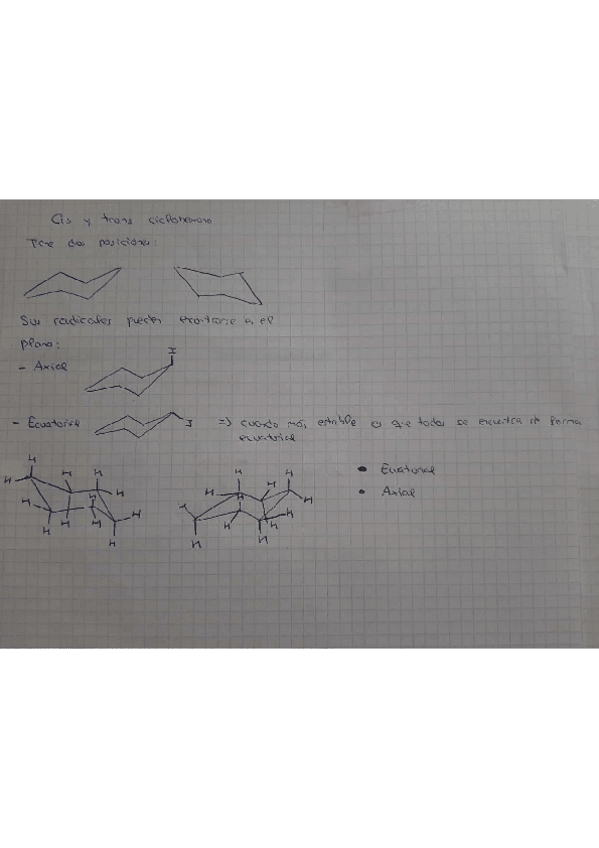 Cis y trans ciclohexano
Tiene dos posiciones:
Sus radicales pueden encontrarse en el
plano:
- Axial
I
- Ecuatorial
I
=> cuando más estable es que todos se encuentra de forma
ecuatorial
H H H H H H H H H H H H
H H H H H H H H H H
• Ecuatorial
• Axial